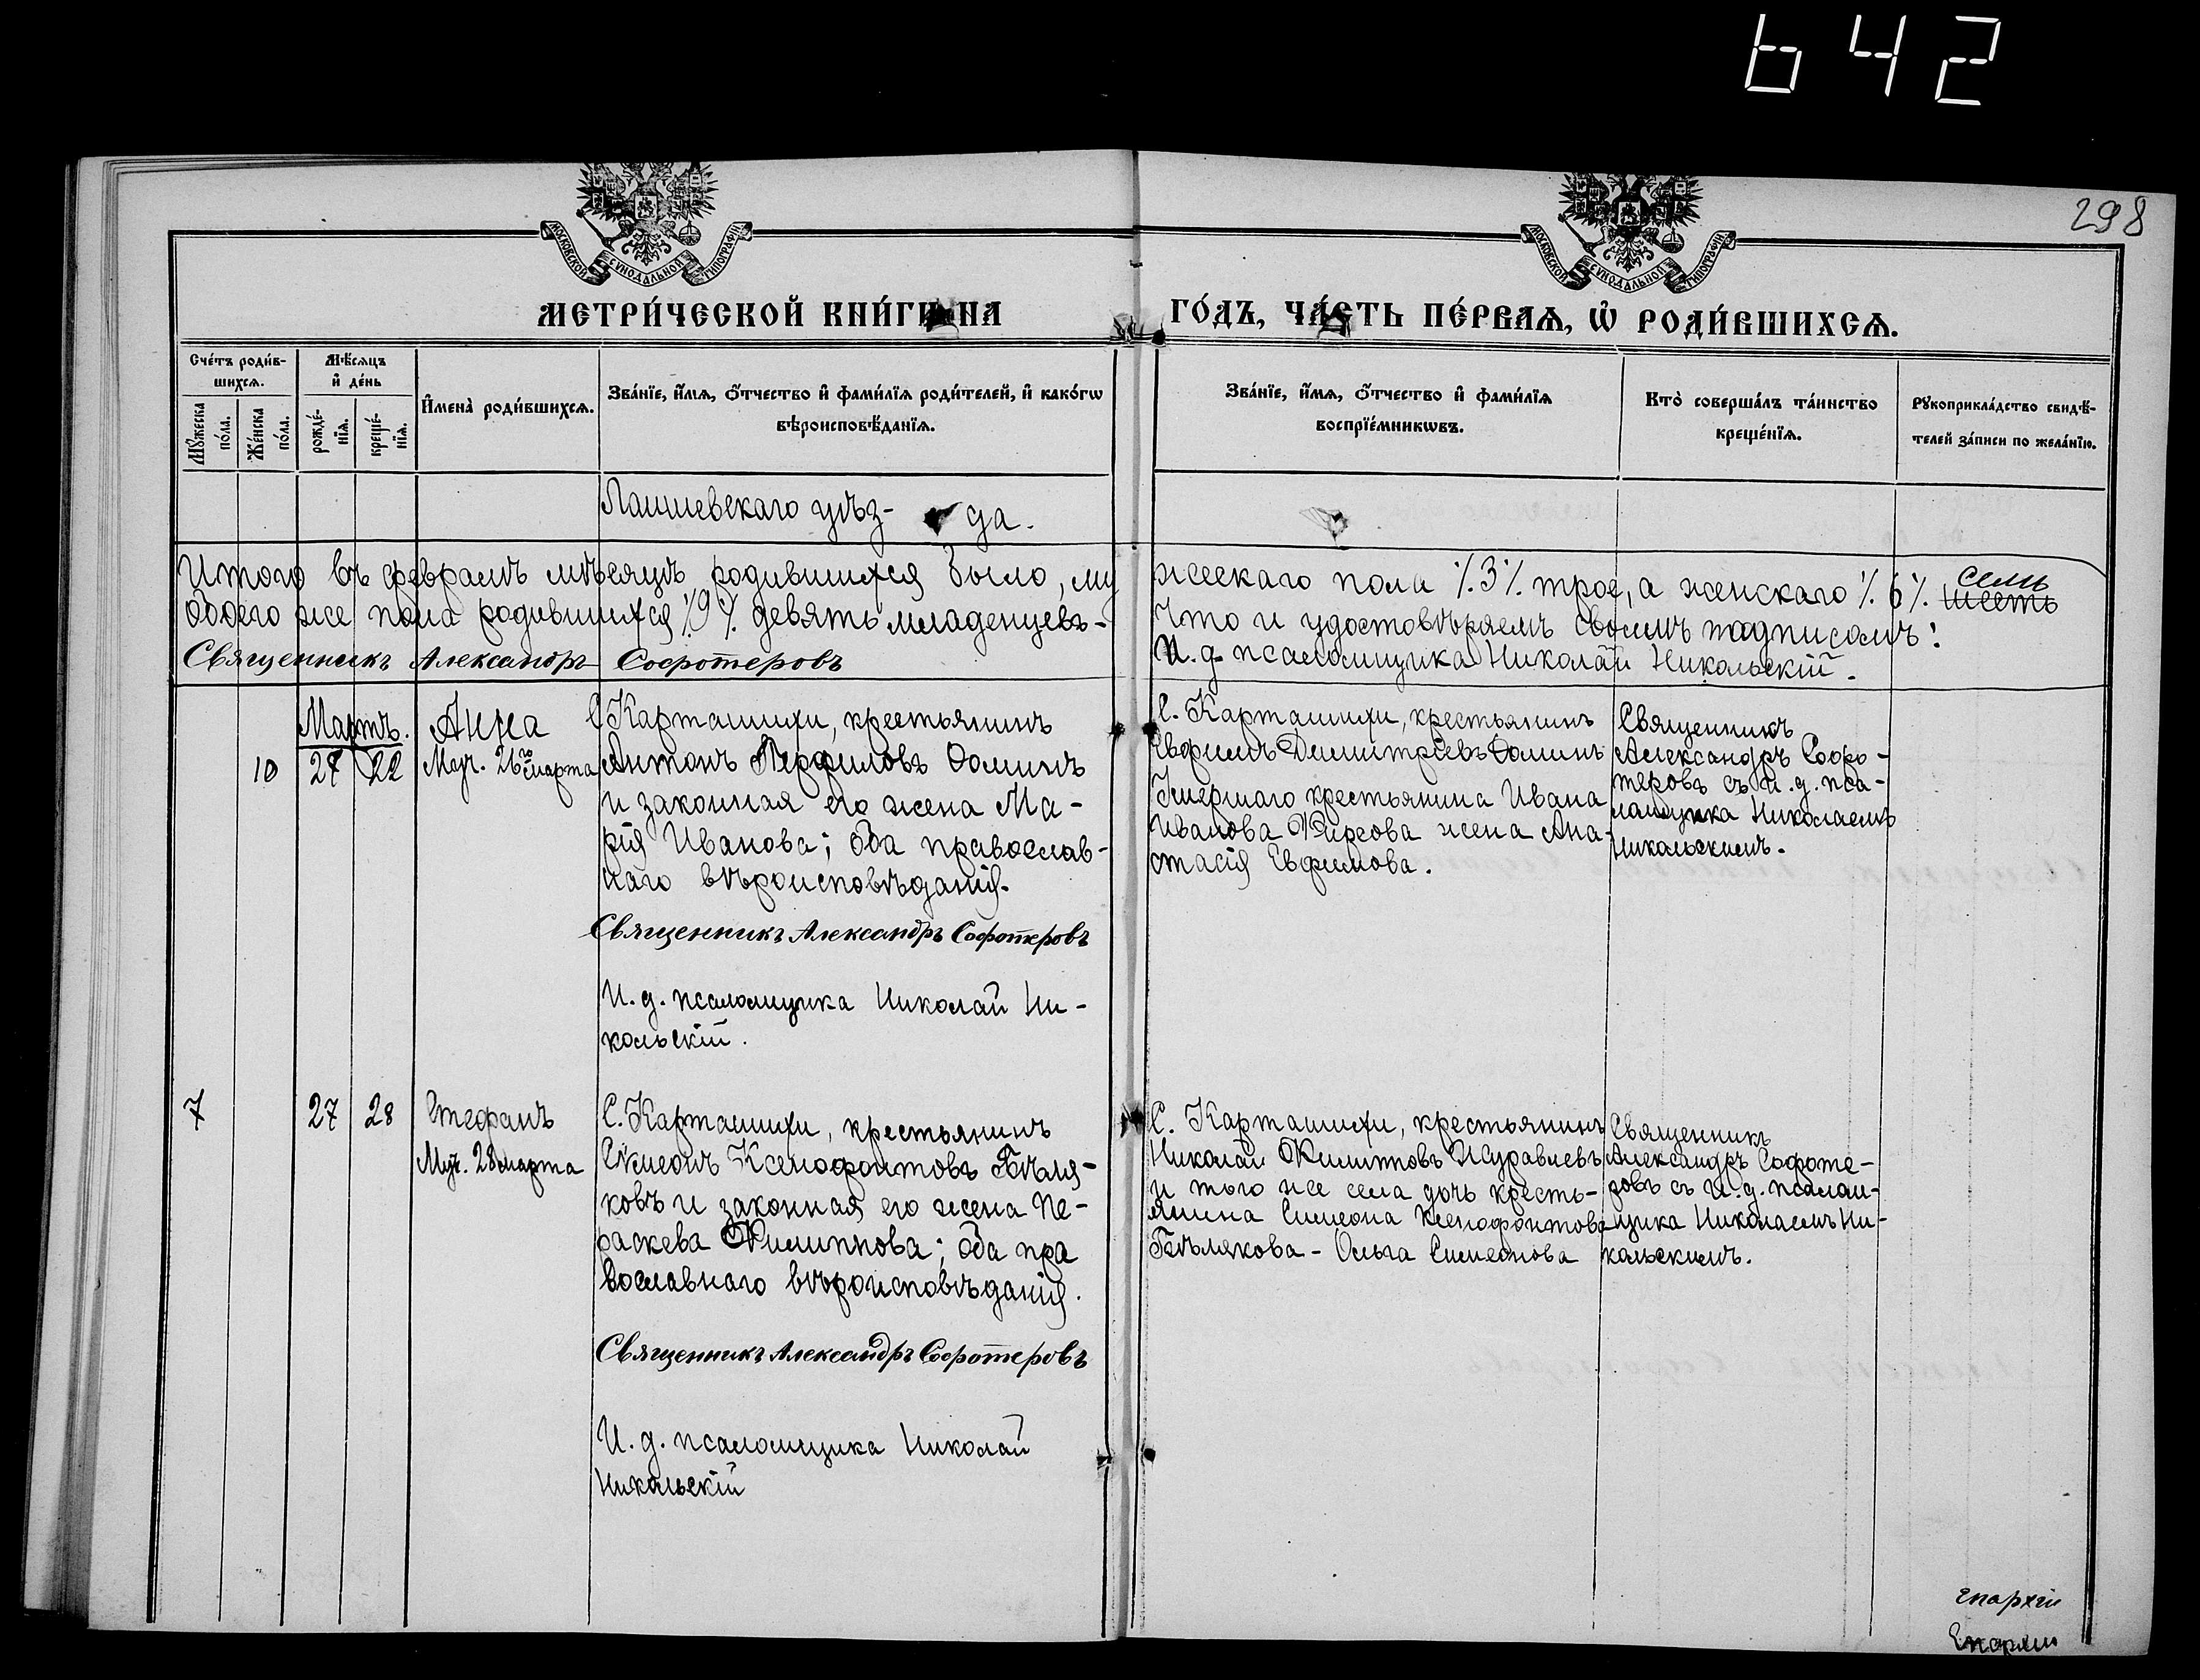 642
298
МОСКОВСКОЙ СУНОДАЛЬНОЙ ТИПОГРАФІИ
МОСКОВСКОЙ СУНОДАЛЬНОЙ ТИПОГРАФІИ
МЕТРИ́ЧЕСКОЙ КНИ́ГИ НА ГО́ДЪ, ЧА́СТЬ ПЕ́РВАѦ, Ѡ҆ РОДИ́ВШИХСѦ.
Сче́тъ роди́в-
шихсѧ.
Мꙋ́жеска по́ла.
Же́нска по́ла.
Мѣ́сѧцъ
и҆ де́нь
рожде́-
нїѧ.
креще́-
нїѧ.
И҆мена̀ роди́вшихсѧ.
Зва́нїе, и҆́мѧ, ѻ҆́тчество и҆ фами́лїѧ роди́телей, и҆ како́гѡ
вѣроисповѣ́данїѧ.
Зва́нїе, и҆́мѧ, ѻ҆́тчество и҆ фами́лїѧ
воспрїе́мникѡвъ.
Кто̀ соверша́лъ та́инство
креще́нїѧ.
Рꙋкоприкла́дство свидѣ́-
телей за́писи по жела́нїю.
Лаишевскаго уѣз-да.
Итого въ февралѣ мѣсяцѣ родившихся было, мужескаго пола ⁒3⁒ трое, а женскаго ⁒6⁒ шесть семь
обоего же пола родившихся ⁒9⁒ девять младенцевъ- Что и удостовѣряемъ своимъ подписомъ:
Священникъ Александръ Софотеровъ И. д. псаломщика Николай Никольскій.
Мартъ.
10 27 22
Анна
Муч. 26го марта
С. Карташихи, крестьянинъ
Антонъ Перфиловъ Фоминъ
и законная его жена Ма-
рія Иванова; оба православ-
наго вѣроисповѣданія.
Священникъ Александръ Софотеровъ
И. д. псаломщика Николай Ни-
кольскій.
С. Карташихи, крестьянинъ
Евфимъ Димитріевъ Фоминъ
Умершаго крестьянина Ивана
Иванова жена Ана-
стасія Евфимова.
Священникъ
Александръ Софо-
теровъ съ и. д. пса-
ломщика Николаемъ
Никольскимъ.
7 27 28
Стефанъ
Муч. 28 марта
С. Карташихи, крестьянинъ
Симеонъ Ксенофонтовъ Бѣля-
ковъ и законная его жена Пе-
раскева Филиппова; оба пра
вославнаго вѣроисповѣданія.
Священникъ Александръ Софотеровъ
И. д. псаломщика Николай
Никольскій
С. Карташихи, крестьянинъ
Николай Филипповъ Журавлевъ
и того же села дочь кресть-
янина Симеона Ксенофонтова
Бѣлякова - Ольга Симеонова
Священникъ
Александръ Софоте-
ровъ съ и. д. псалом-
щика Николаемъ Ни-
кольскимъ.
Епархіи
Епархіи